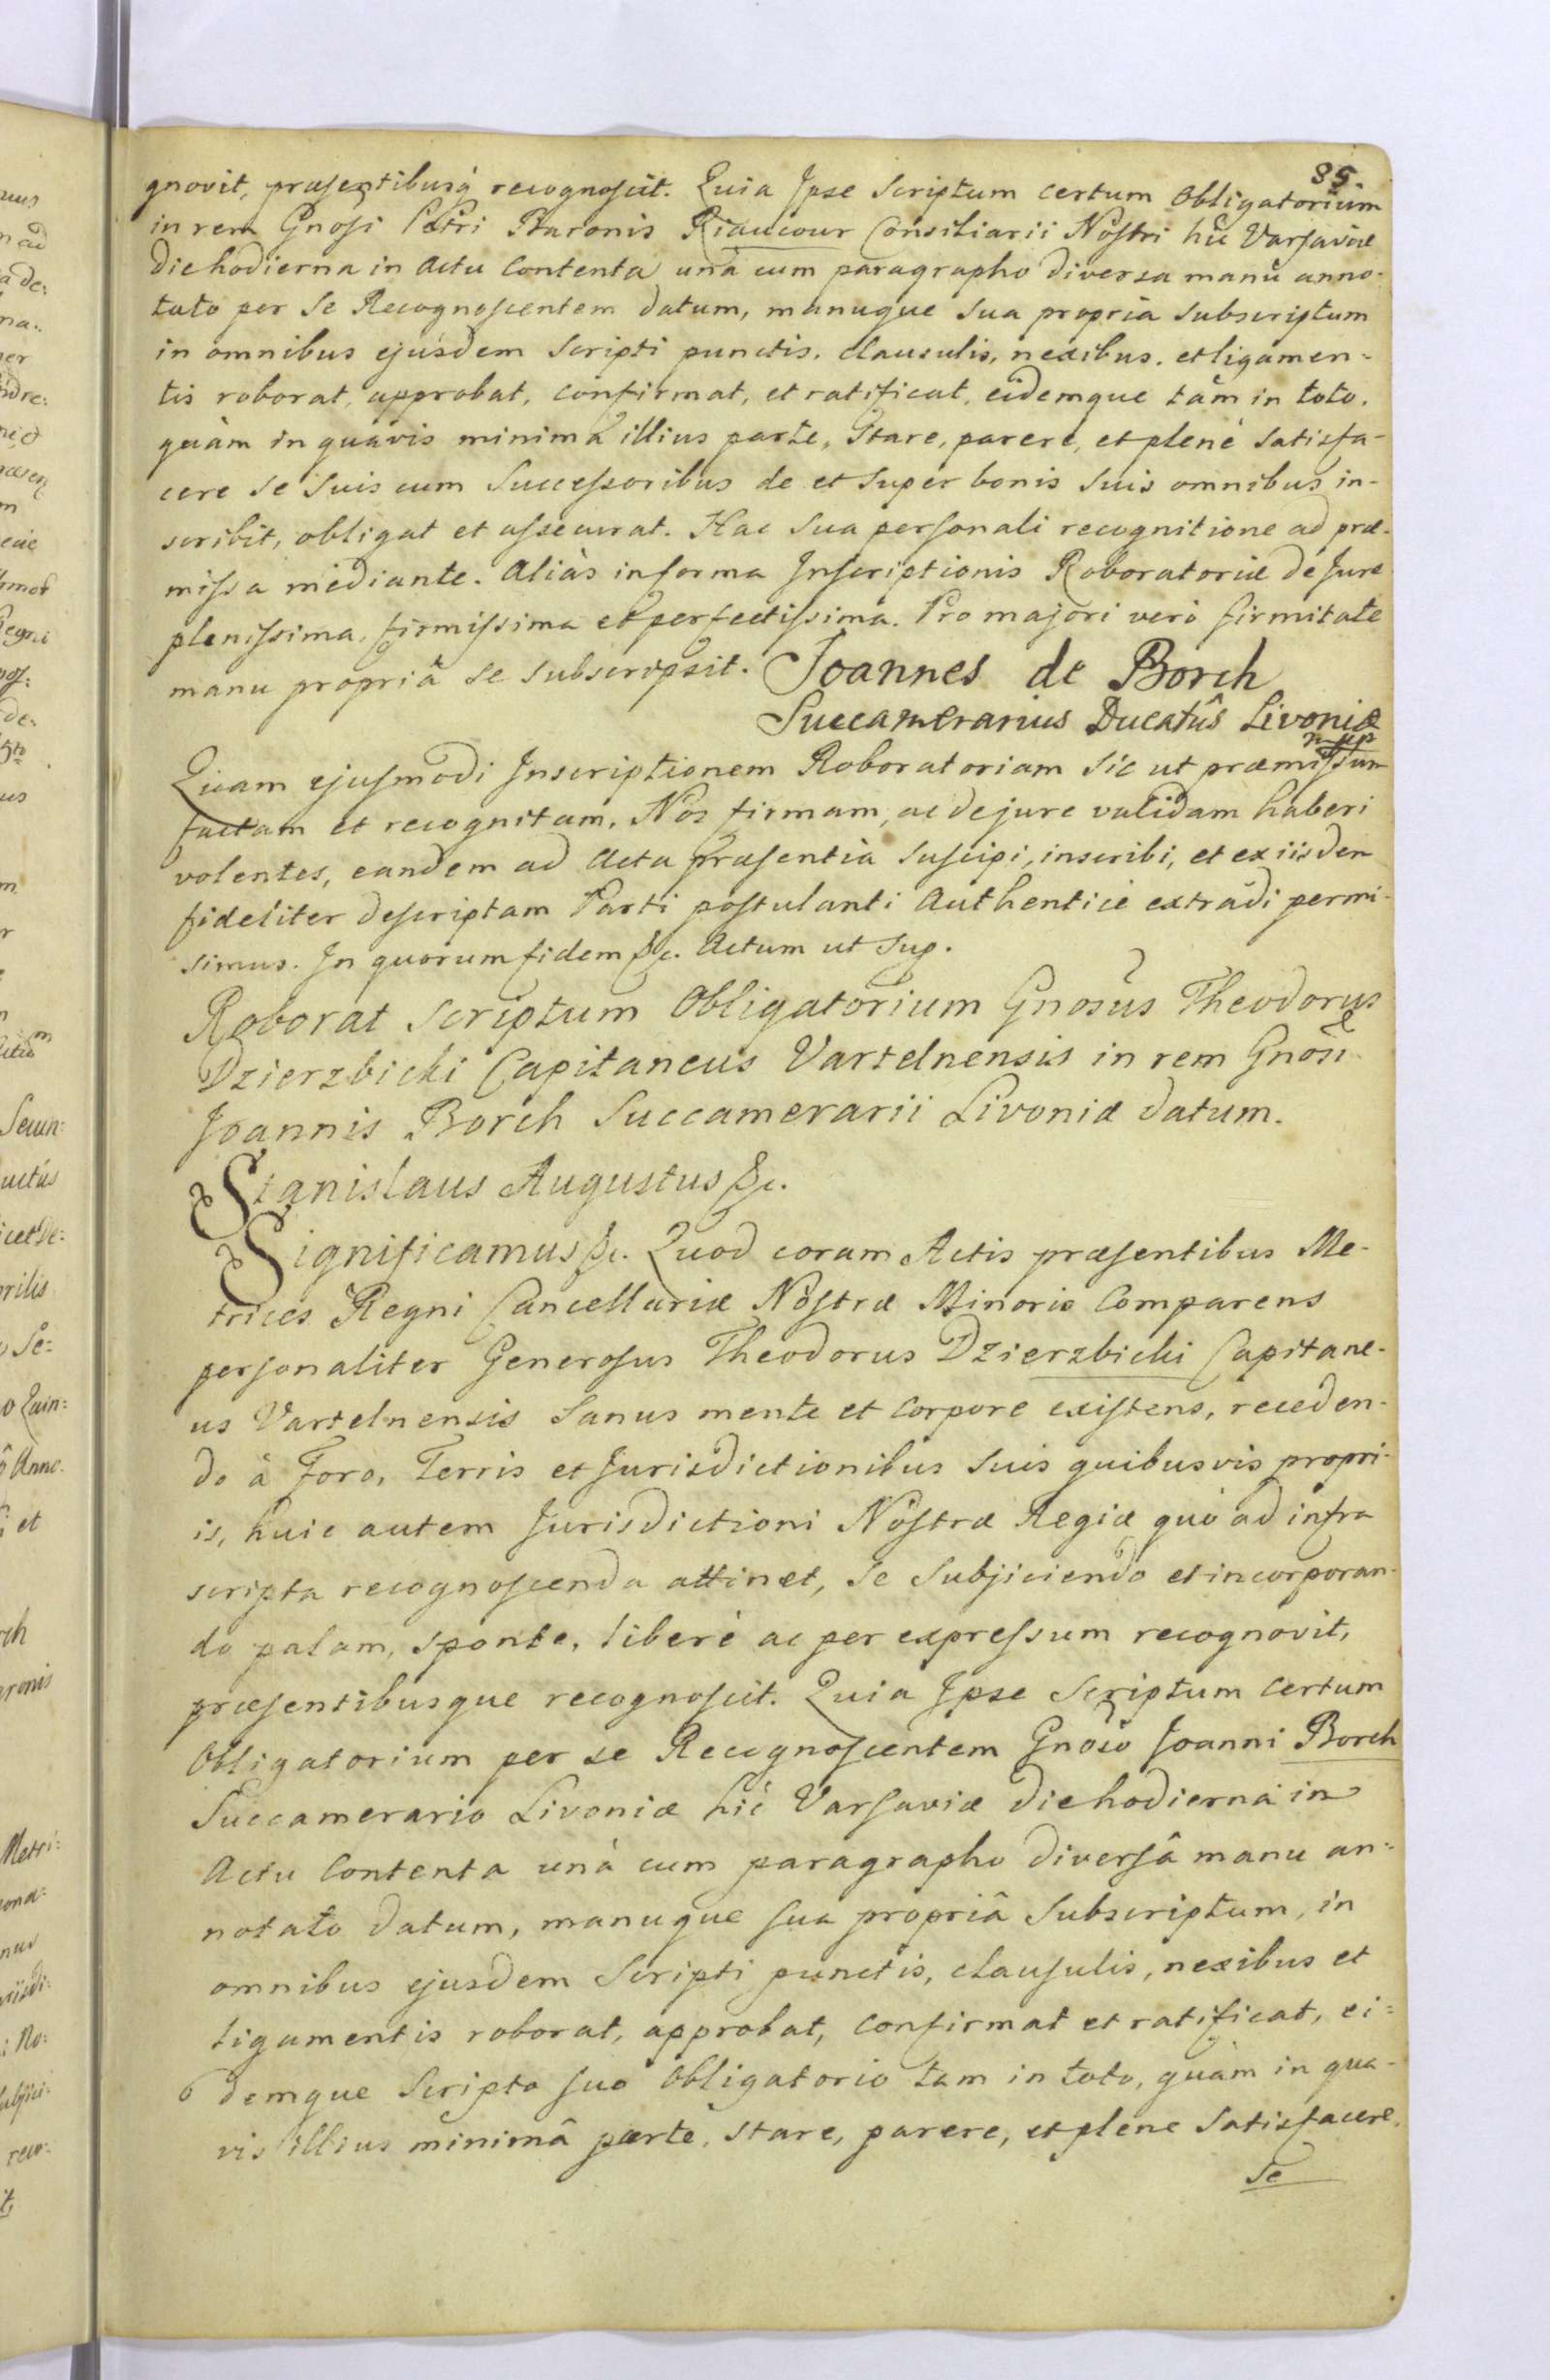 85.
gnovit, præsentibusq̀ recognoscit. Quia Ipse Scriptum certum Obligatorium
in rem Gnosi Petri Baronis Riaucour Consiliarii Nostri hic Varsaviæ
die hodierna in Actu Contenta una cum paragrapho diversa manû anno-
tato per Se Recognoscentem datum, manuque Sua propria Subscriptum
in omnibus ejusdem Scripti punctis, clausulis, nexibus, et ligamen-
tis roborat, approbat, confirmat, et ratificat, eidemque tàm in toto,
quàm in quàvis minimâ illius parte, Stare, parere, et plenè Satisfa-
cere Se Suis cum Successoribus de et Super bonis Suis omnibus in-
scribit, obligat et assecurat. Hac Sua personali recognitione ad præ-
missa mediante. Aliàs in forma Inscriptionis Roboratoriæ de Jure
plenissima, firmissima et perfectissima. Pro majori verò firmitate
manu propriâ Se Subscripsit. Joannes de Borch
Succamerarius Ducatûs Livoniæ
mpp
Quam ejusmodi Inscriptionem Roboratoriam Sic ut præmissum
factam et recognitam, Nos firmam, ac de jure validam haberi
volentes, eandem ad Acta præsentia Suscipi, inscribi, et ex iisdem
fideliter descriptam Parti postulanti Authenticè extradi permi-
simus. In quorum fidem &c. Actum ut Sup.
Roborat Scriptum Obligatorium Gnosus Theodorus
Dzierzbicki Capitaneus Vartelnensis in rem Gnosi
Joannis Borch Succamerarii Livoniæ datum.
Stanislaus Augustus &c.
Significamus &c. Quod coram Actis præsentibus Me-
trices Regni Cancellariæ Nostræ Minoris Comparens
personaliter Generosus Theodorus Dzierzbicki Capitane-
us Vartelnensis Sanus mente et Corpore existens, receden-
do â Foro, Terris et Jurisdictionibus Suis quibusvis propri-
is, huic autem Jurisdictioni Nostræ Regiæ quò ad infra
scripta recognoscenda attinet, Se Subjiciendo et incorporan-
do palam, sponte, liberè ac per expressum recognovit,
præsentibusque recognoscit. Quia Ipse Scriptum certum
Obligatorium per se Recognoscentem Gnoso Joanni Borch
Succamerario Livoniæ hìc Varsaviæ die hodierna in
Actu Contenta unà cum paragrapho diversâ manu an-
notato datum, manuque sua propriâ Subscriptum, in
omnibus ejusdem Scripti punctis, clausulis, nexibus et
ligamentis roborat, approbat, confirmat et ratificat, ei-
demque Scripto suo Obligatorio tam in toto, quàm in qua-
vis illius minimâ parte, stare, parere, et plene Satisfacere
Se